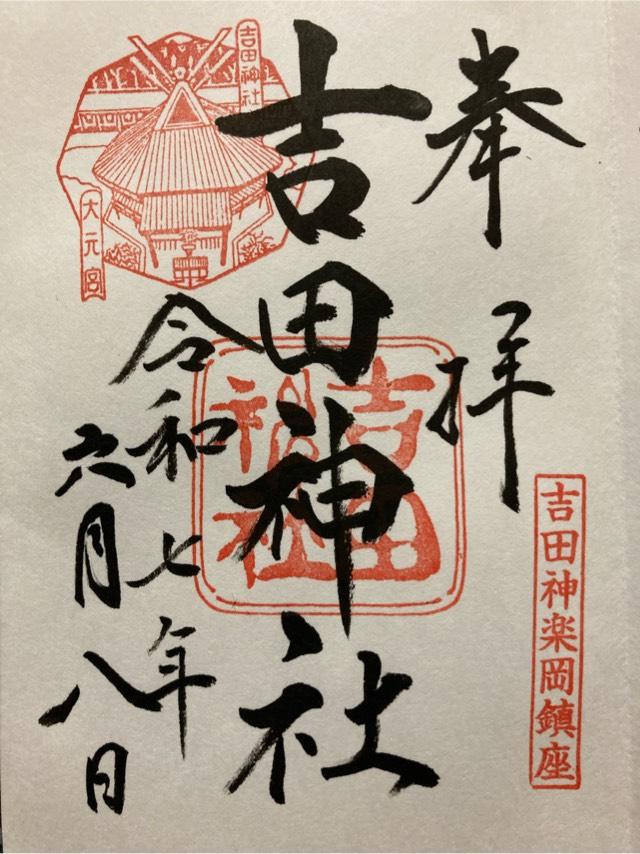 奉拝
吉田神楽岡鎮座
吉田神社
吉田神社
吉田神社
大元宮
令和七年
六月八日